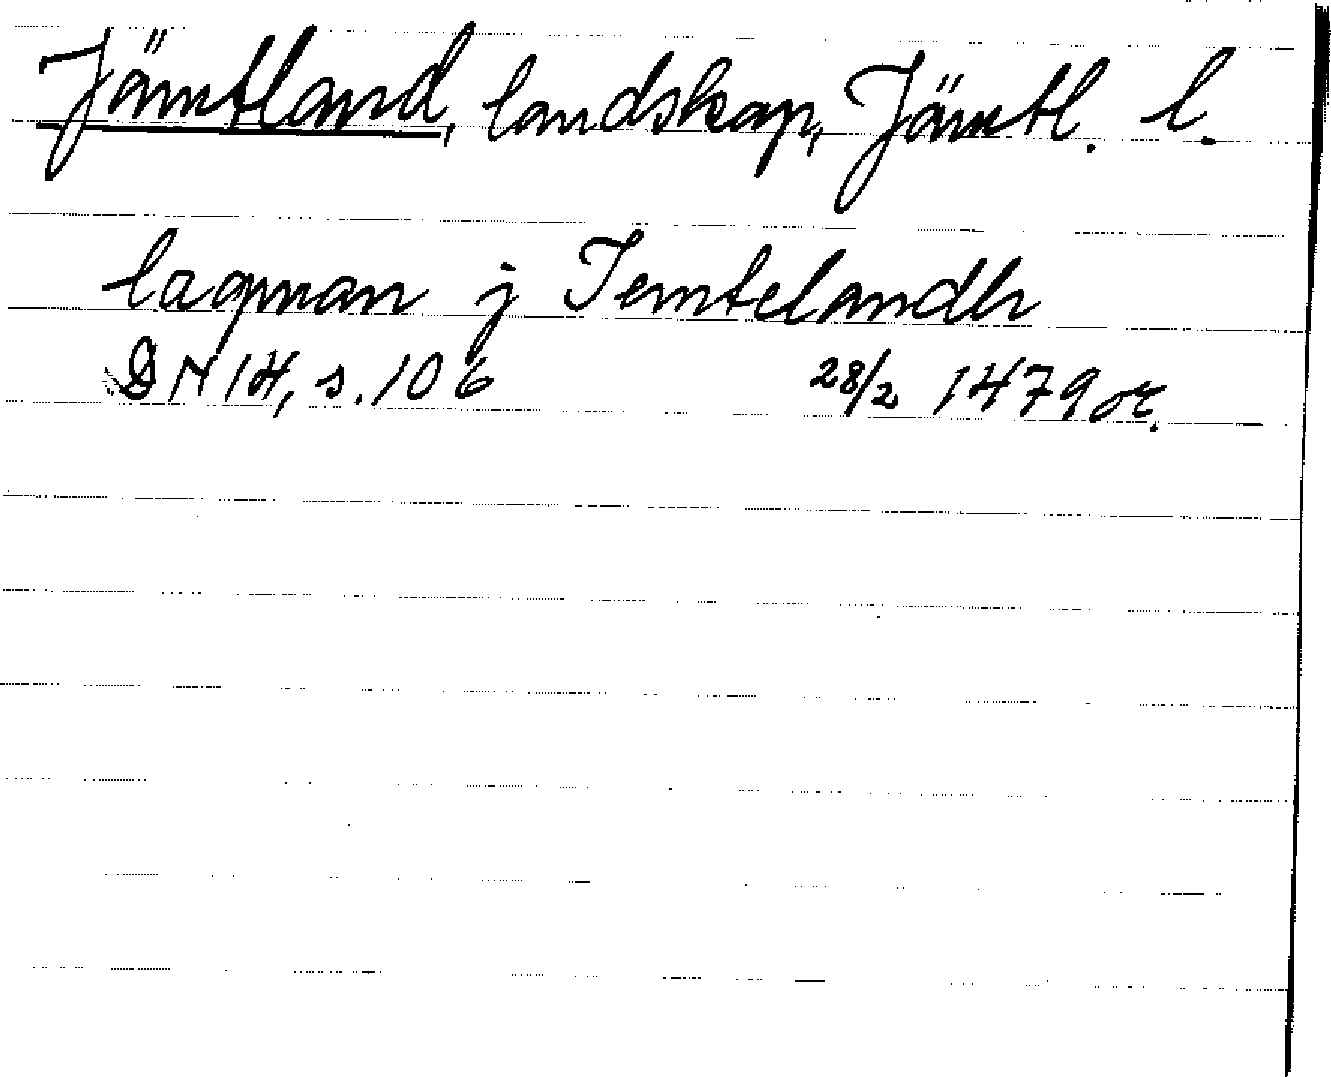 Jämtland, landskap, Jämtl. l.
lagman j Jemtelandh
DN 14, s. 106 28/2 1479 or.